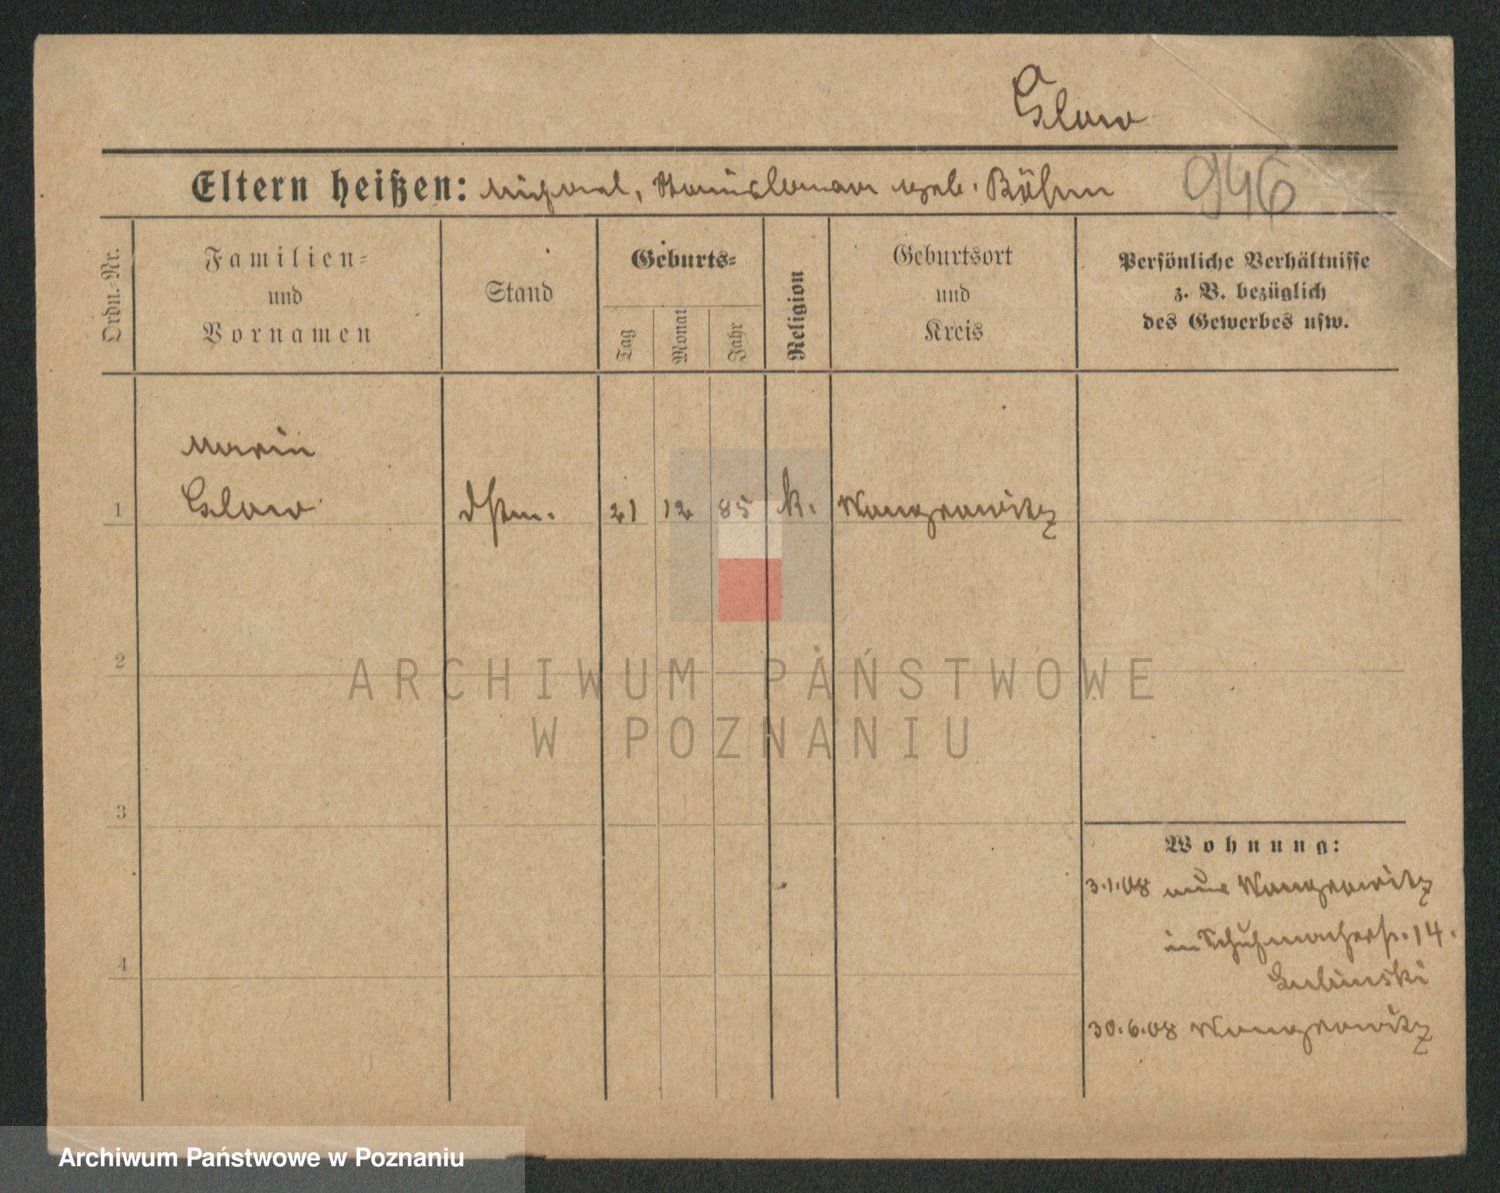 Glow
Eltern heißen: Michael, Stanislawa geb. Böhm
946
Ordn.-Nr.
Familien-
und
Vornamen
Stand
Geburts-
Tag
Monat
Jahr
Religion
Geburtsort
und
Kreis
Persönliche Verhältnisse
z. B. bezüglich
des Gewerbes usw.
Marie
1 Glow Dstm. 21 12 85 k. Wongrowitz
2
ARCHIWUM PAŃSTWOWE
W POZNANIU
3
Wohnung:
3.1.08 aus Wongrowitz
in Schuhmacherstr. 14.
4
30.6.08 Wongrowitz
Archiwum Państwowe w Poznaniu